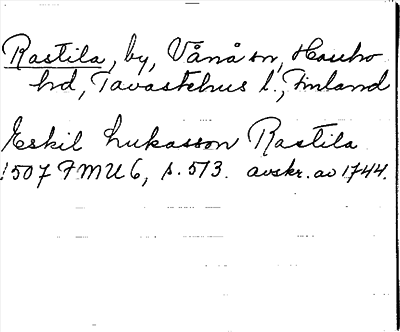 Rastila, by, Vånå sn, Hauho
hd, Tavastehus l., Finland
Eskil Lukasson Rastila
1507 FMU 6, s. 513. avskr. av 1744.